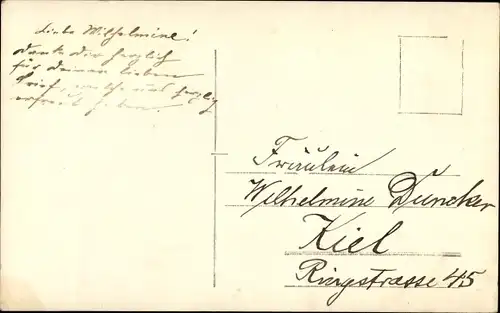 Liebe Wilhelmine!
danke dir herzlich
für deinen lieben
Brief, welche uns herzlig
erfreut haben.
Fräulein
Wilhelmine Duncker
Kiel
Ringstrasse 45